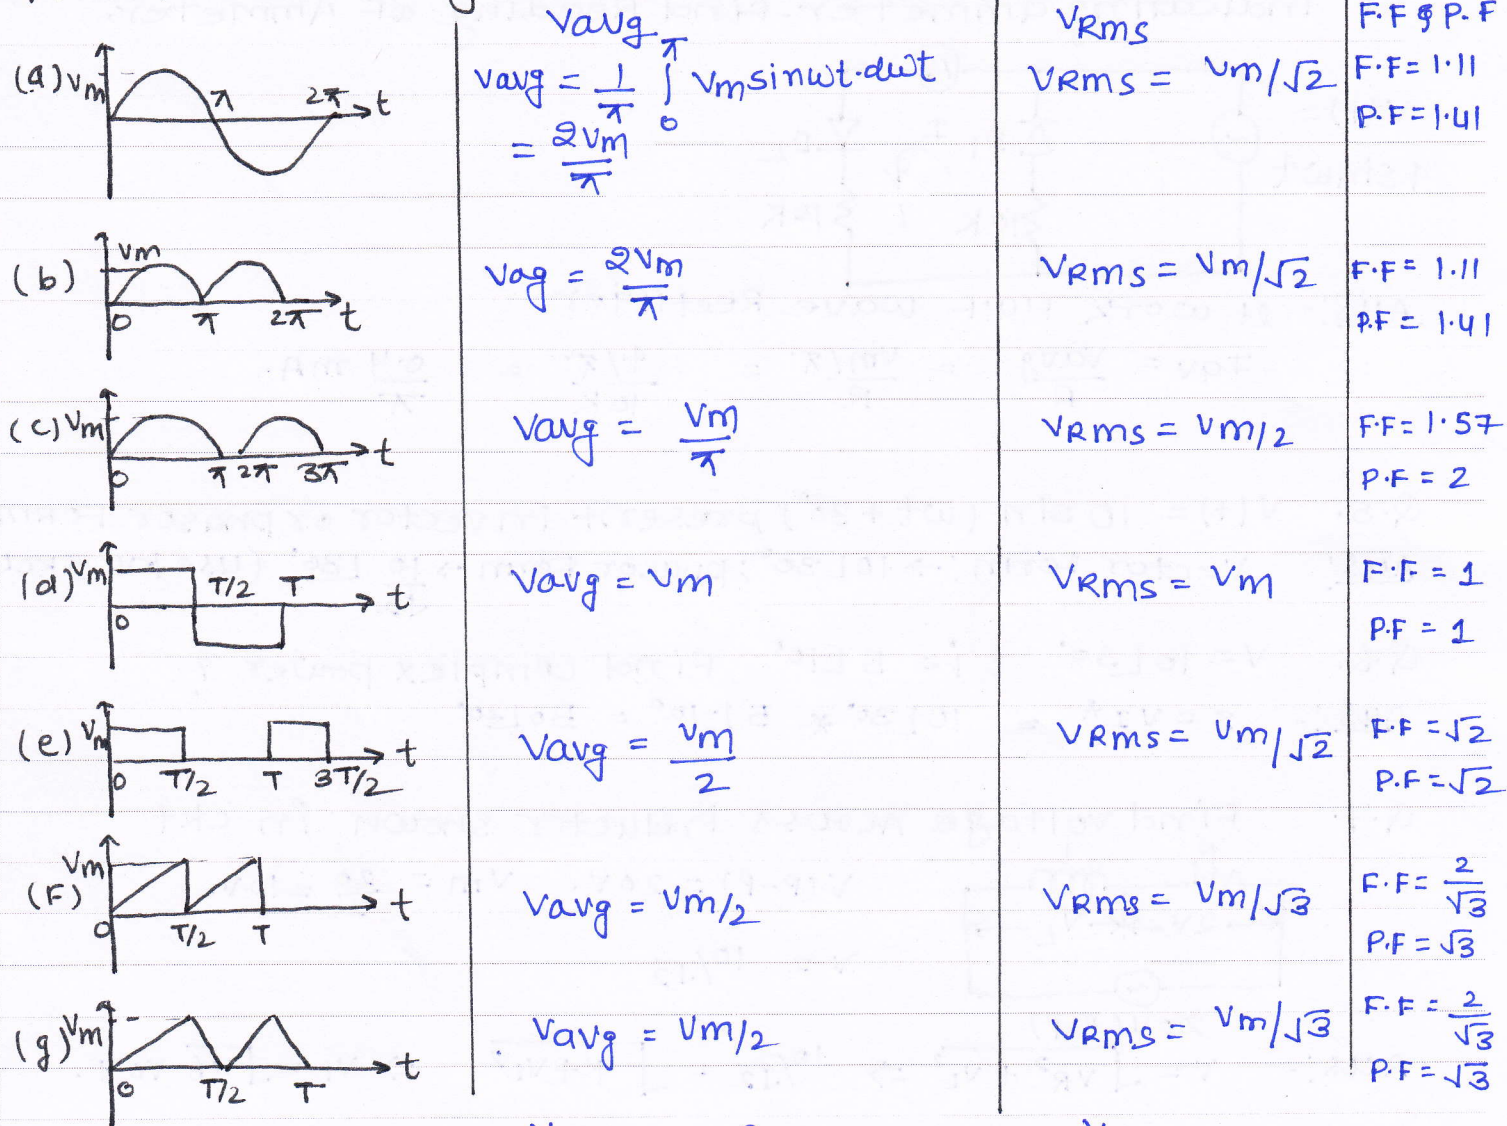 Vavg VRms F.F & P.F
(a) Vm π 2π t Vavg = 1/π ∫ π 0 Vm sinωt.dωt VRms = Vm/√2 F.F = 1.11
= 2Vm/π P.F = 1.41
(b) Vm 0 π 2π t Vag = 2Vm/π VRms = Vm/√2 F.F = 1.11
P.F = 1.41
(c) Vm 0 π 2π 3π t Vavg = Vm/π VRms = Vm/2 F.F = 1.57
P.F = 2
(d) Vm 0 T/2 T t Vavg = Vm VRms = Vm F.F = 1
P.F = 1
(e) Vm 0 T/2 T 3T/2 t Vavg = Vm/2 VRms = Vm/√2 F.F = √2
P.F = √2
(F) Vm 0 T/2 T t Vavg = Vm/2 VRms = Vm/√3 F.F = 2/√3
P.F = √3
(g) Vm 0 T/2 T t Vavg = Vm/2 VRms = Vm/√3 F.F = 2/√3
P.F = √3